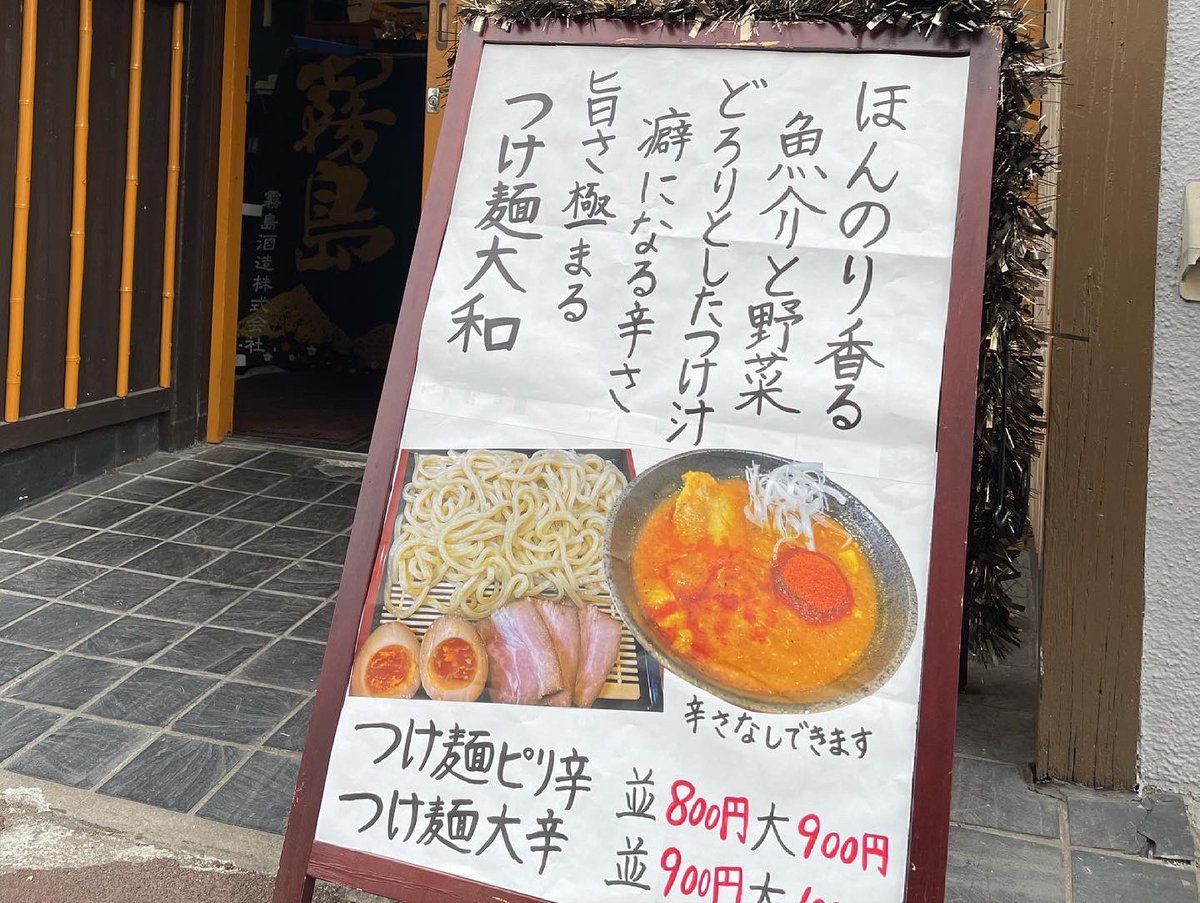 ほんのり香る
魚介と野菜
どろりとしたつけ汁
癖になる辛さ
旨さ極まる
つけ麺大和
辛さなしできます
つけ麺ピリ辛 並800円大900円
つけ麺大辛 並900円大
霧島
霧島酒造株式会社